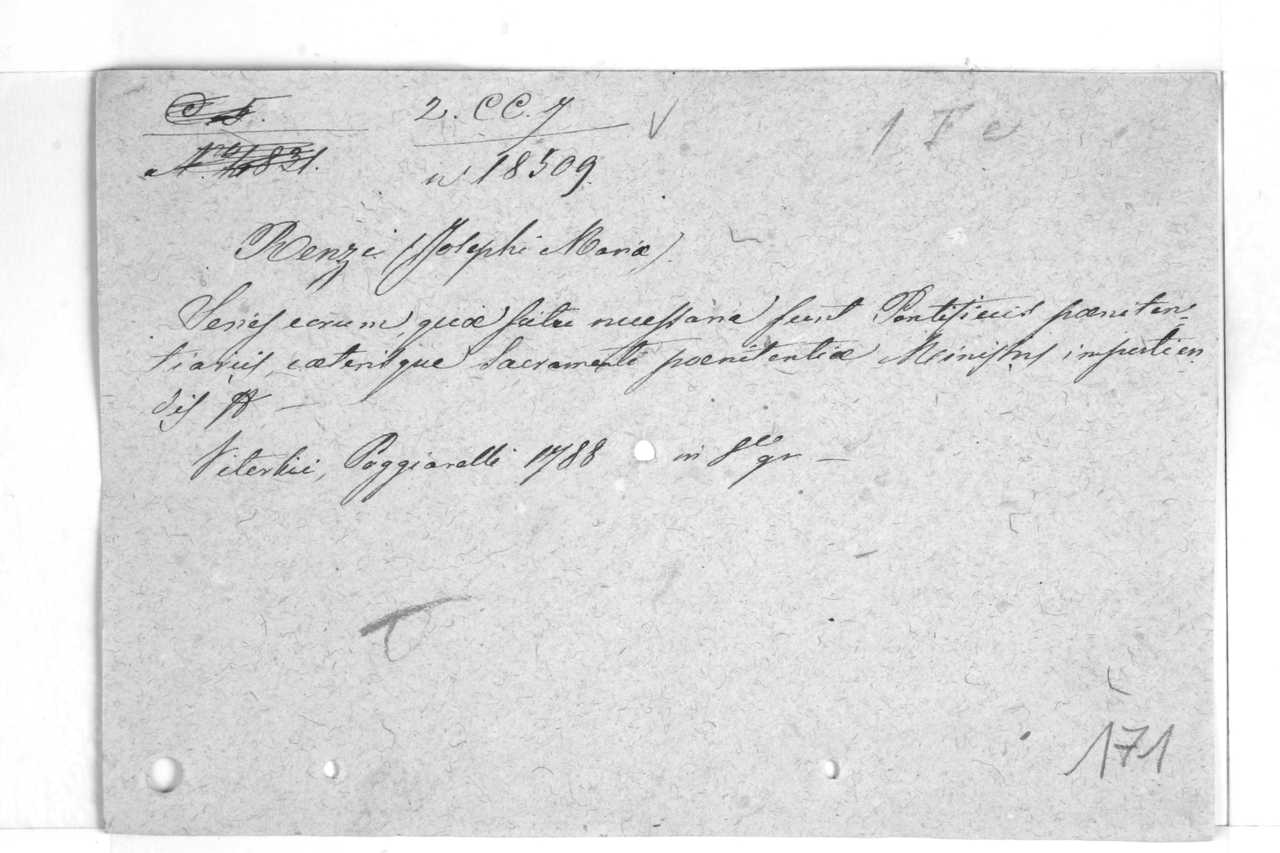 2. CC. 7
n° 18509.
Renzi (Josephi Mariæ)
Series eorum, quæ scitu necessaria sunt Pontificiis pœniten-
tiariis, cæterisque Sacramenti pœnitentiæ Ministris impertien-
dis
Viterbii, Poggiarelli 1788 in 8° gr —
171